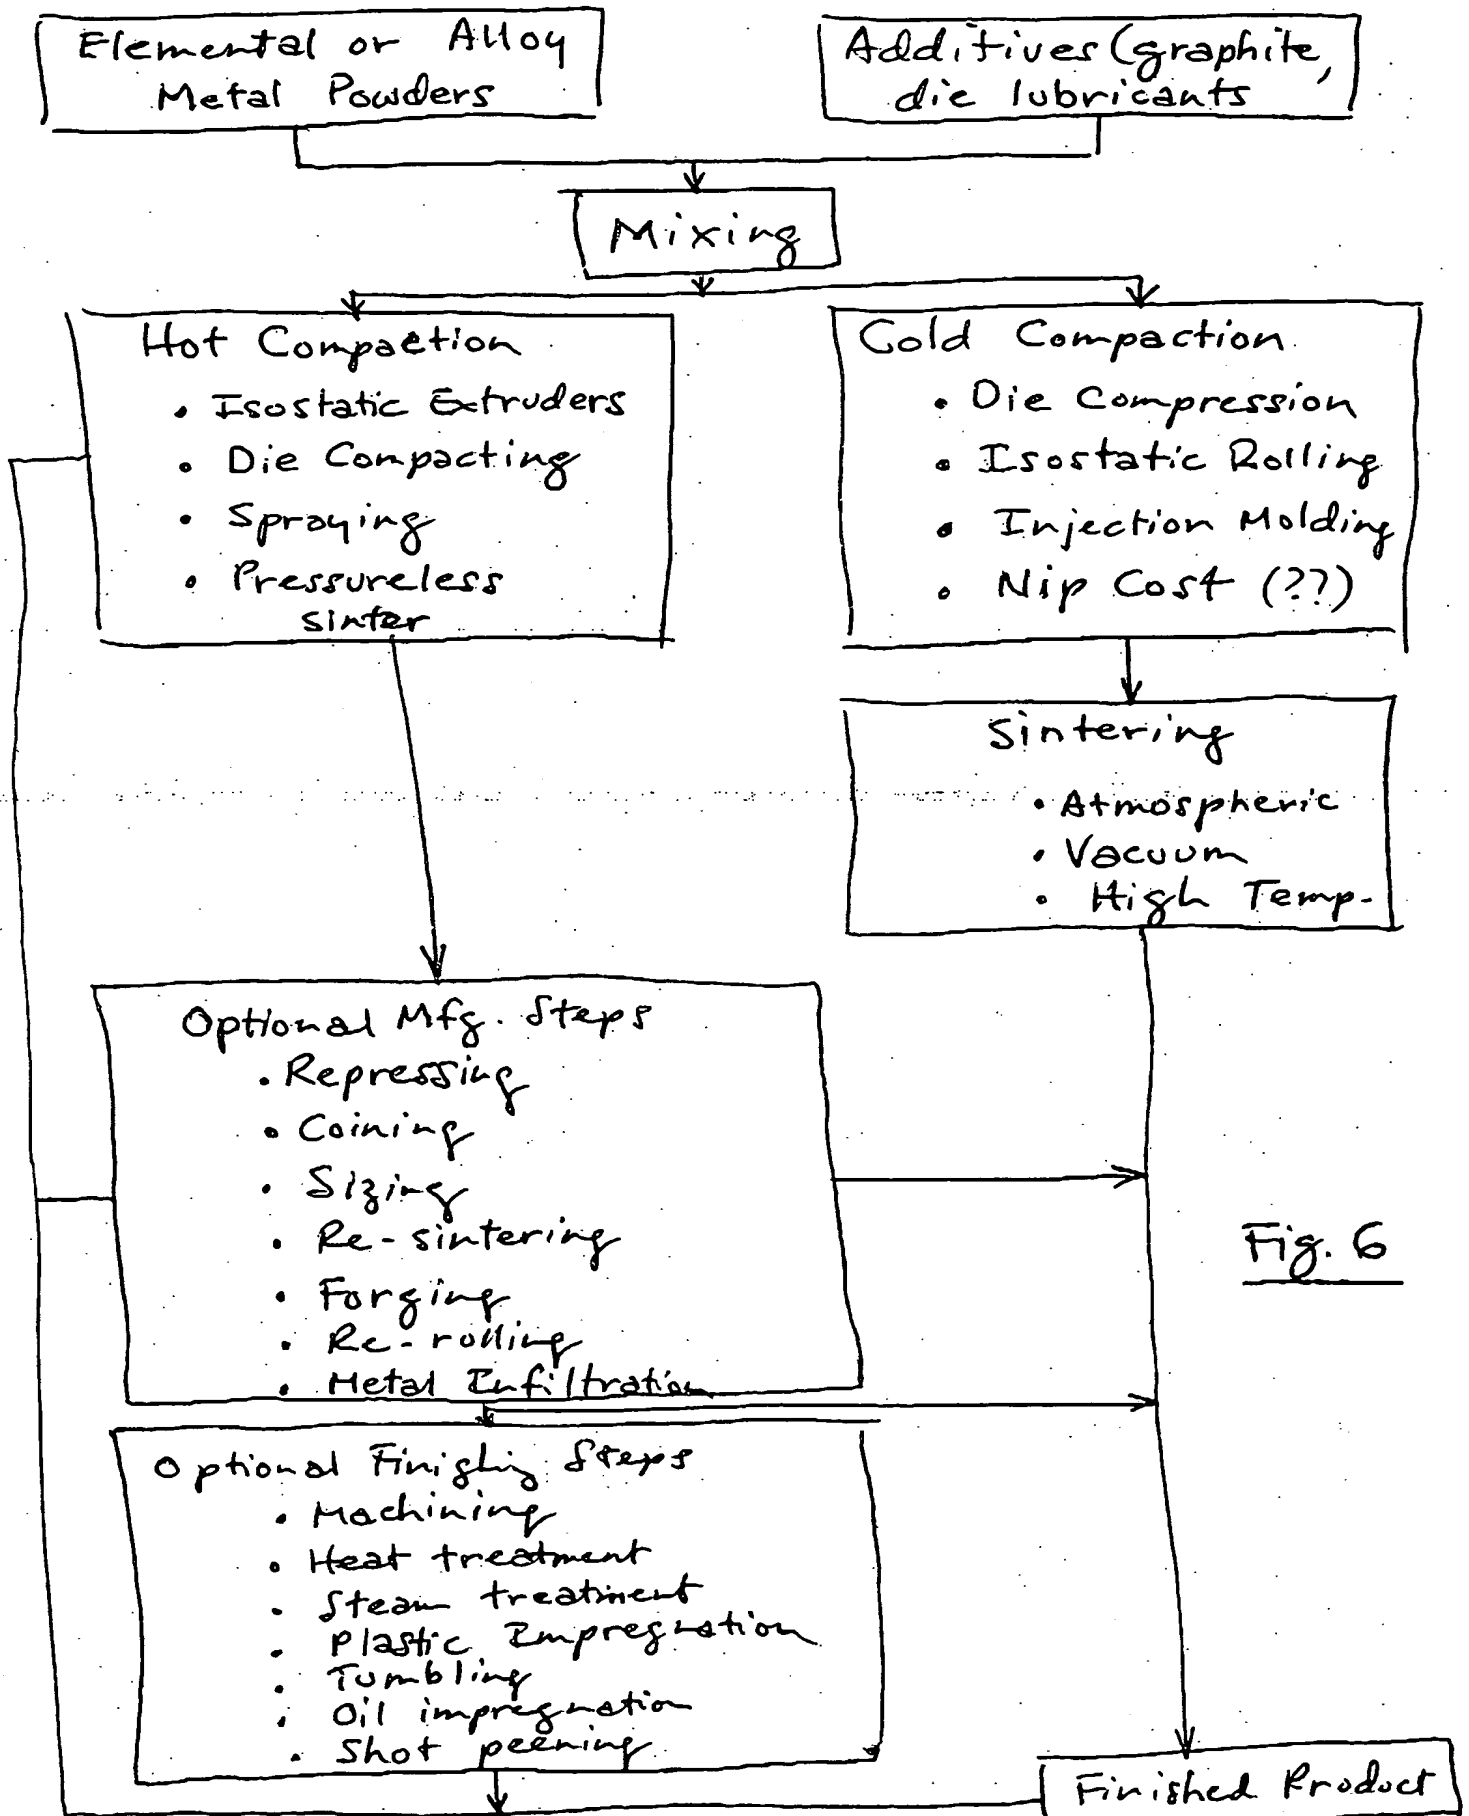 Elemental or Alloy
Metal Powders
Additives (graphite,
die lubricants
Mixing
Hot Compaction
• Isostatic Extruders
• Die Compacting
• Spraying
• Pressureless
sinter
Cold Compaction
• Die Compression
• Isostatic Rolling
• Injection Molding
• Nip Cost (??)
Sintering
• Atmospheric
• Vacuum
• High Temp.
Optional Mfg. Steps
• Repressing
• Coining
• Sizing
• Re-sintering
• Forging
• Re-rolling
• Metal Infiltration
Fig. 6
Optional Finishing Steps
• Machining
• Heat treatment
• Steam treatment
• Plastic Impregnation
• Tumbling
• Oil impregnation
• Shot peening
Finished Product